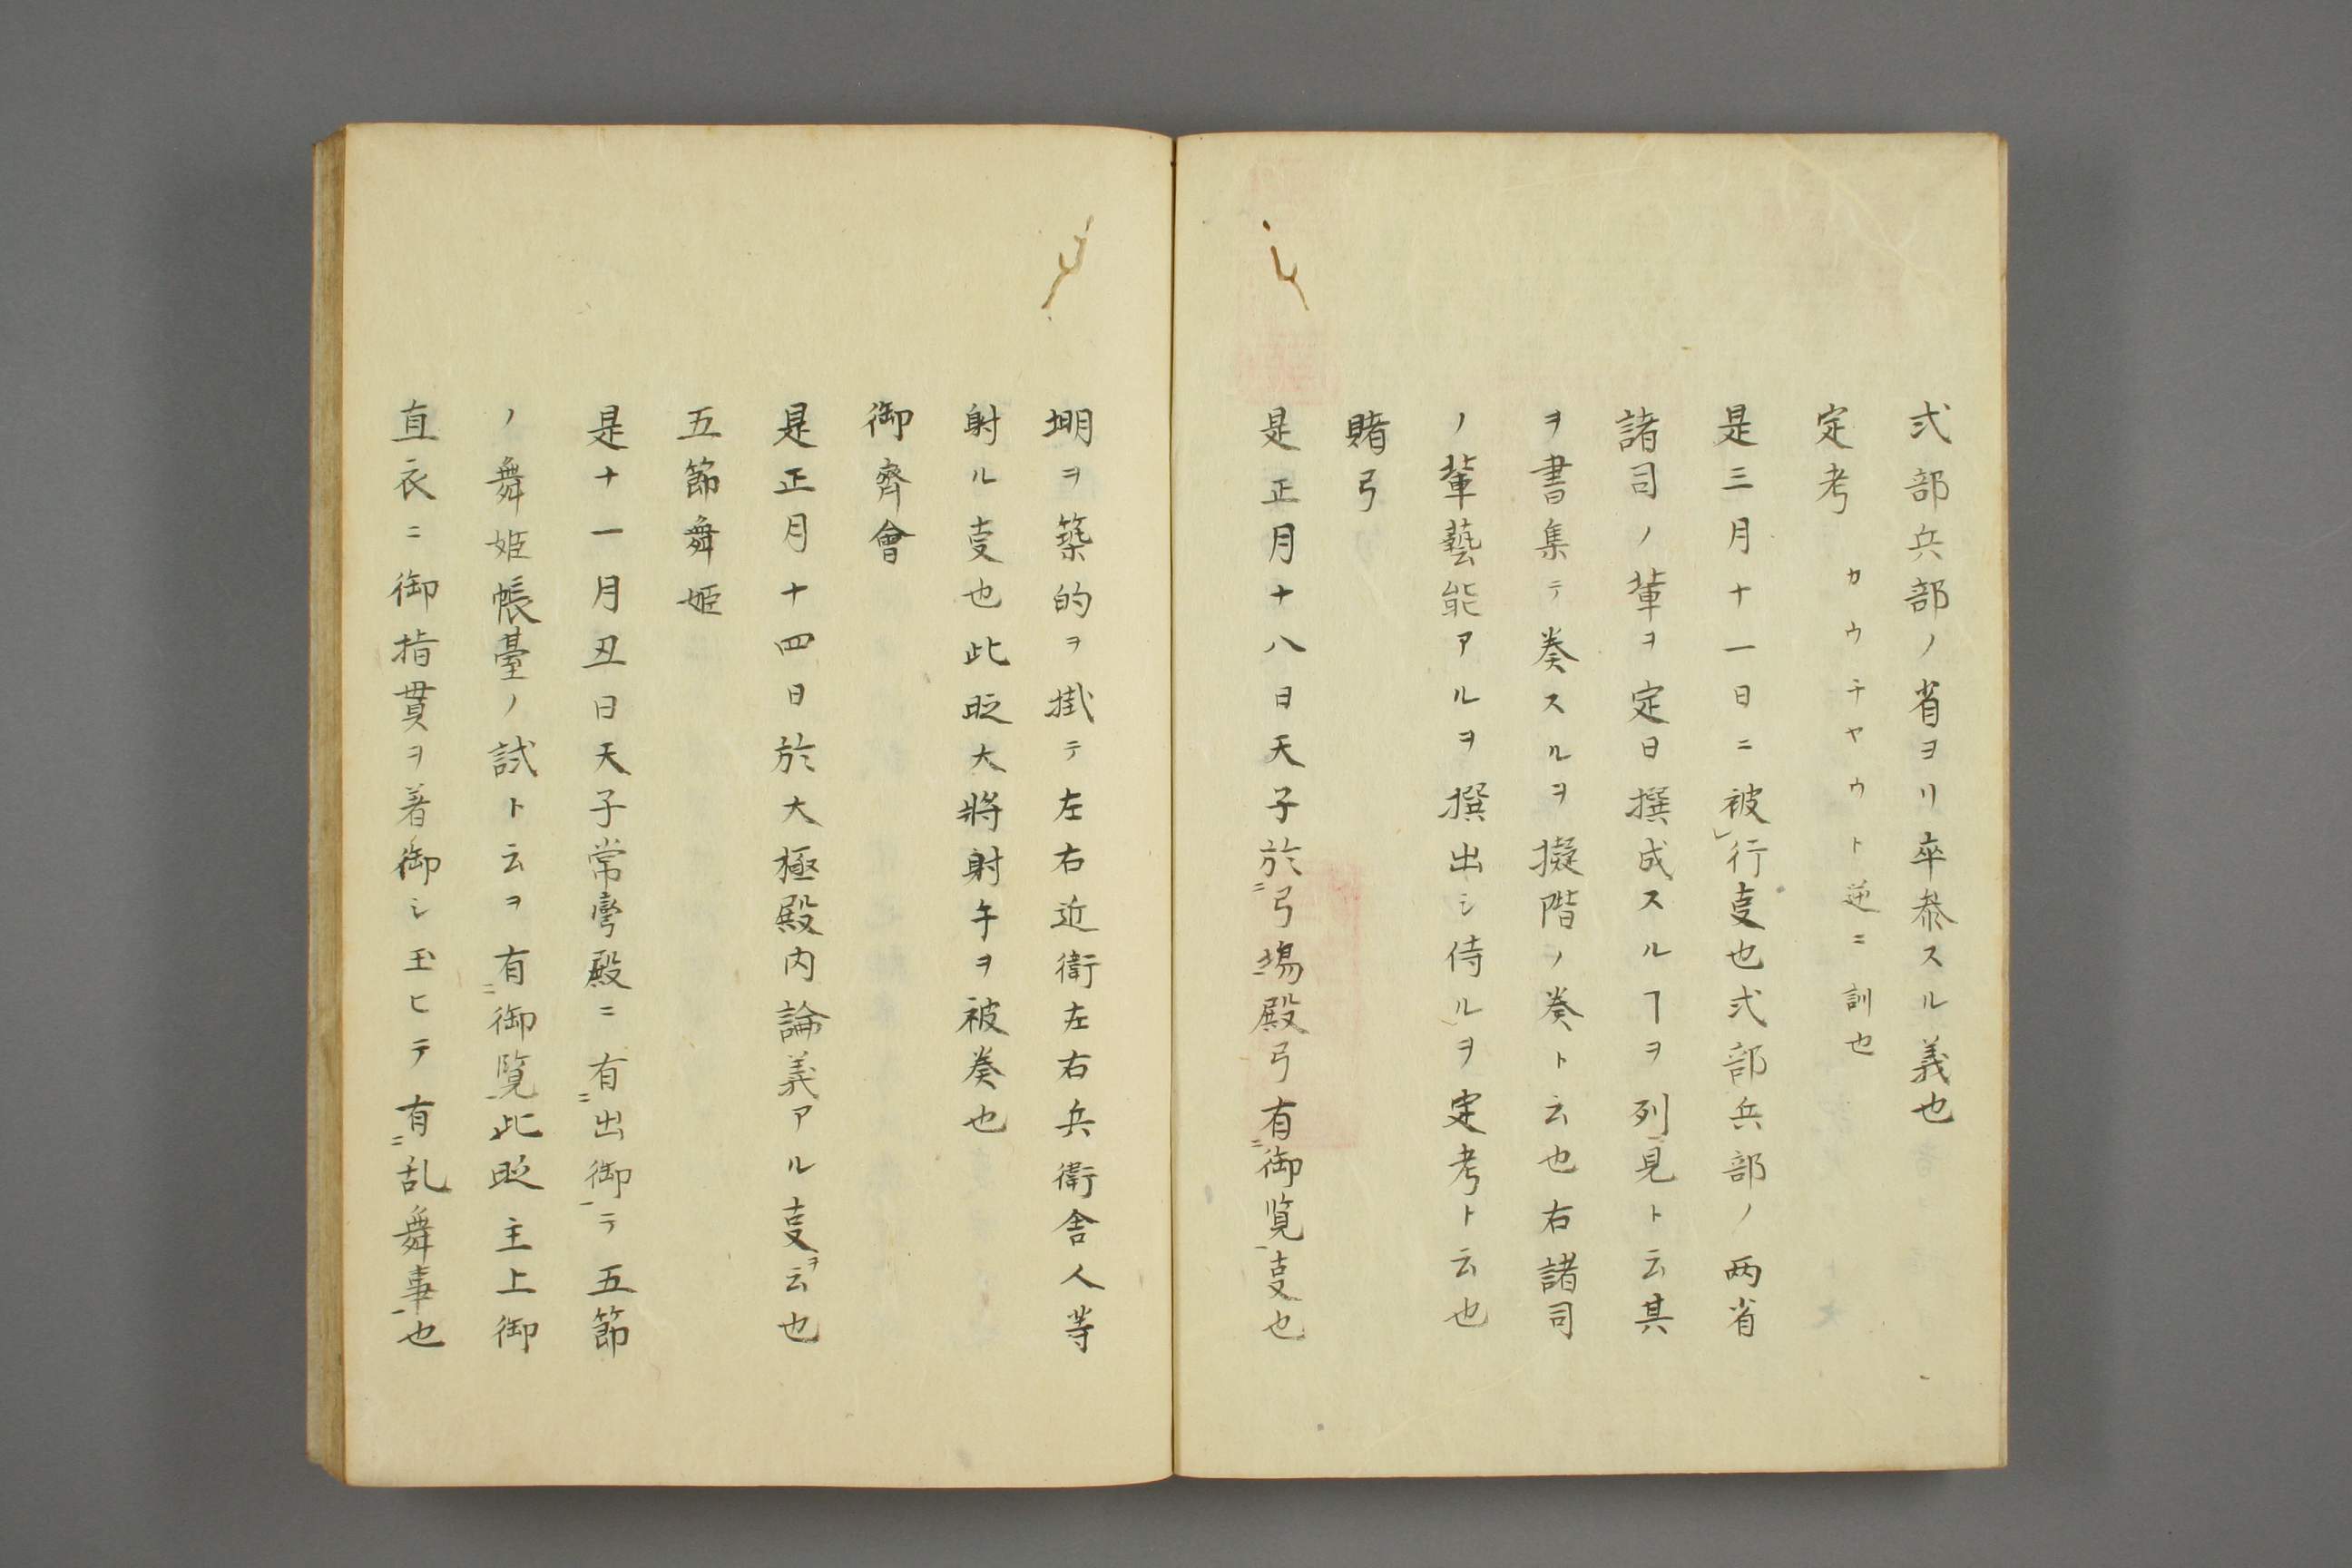 式部兵部ノ省ヨリ卒叅スル義也
定考 カウチヤウト逆ニ訓也
是三月十一日ニ被レ行㕝也式部兵部ノ两省
諸司ノ輩ヲ定日撰成スルヿヲ列見ト云其
ヲ書集テ奏スルヲ擬階ノ奏ト云也右諸司
ノ輩藝能アルヲ撰出シ侍ルヲ定考ト云也
賭弓
是正月十八日天子於二弓塲殿弓一有二御覧一㕝也
堋ヲ築的ヲ掛テ左右近衛左右兵衛舎人等
射ル㕝也此時大將射午ヲ被奏也
御齊會
是正月十四日於大極殿内論義アル㕝ヲ云也
五節舞姫
是十一月丑日天子常寧殿ニ有二出御一テ五節
ノ舞姫帳臺ノ試ト云ヲ有二御覧一此時主上御
直衣ニ御指貫ヲ着御シ玉ヒテ有二乱舞事一也